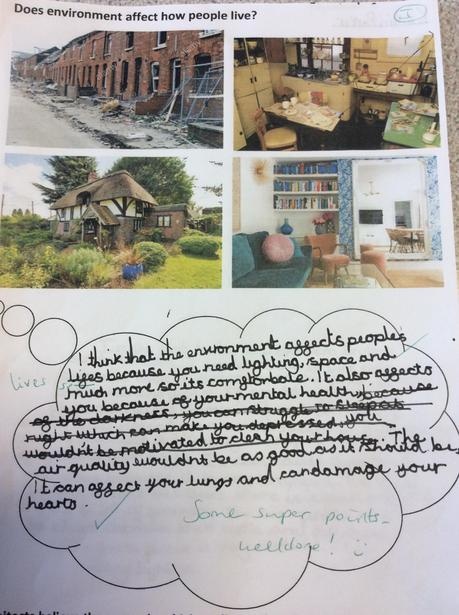 Does environment affect how people live?
I
I think that the environment affects people's
lifes because you need lighting, space and
lives
much more so its comfortable. It also affects
you because of your mental health, because
of the darkness, you can struggle to sleep at
night which can make you depressed, you
wouldn't be motivated to clean your house. The
air quality wouldn't be as good as it should be,
It can affect your lungs and can damage your
hearts.
Some super points-
welldone!